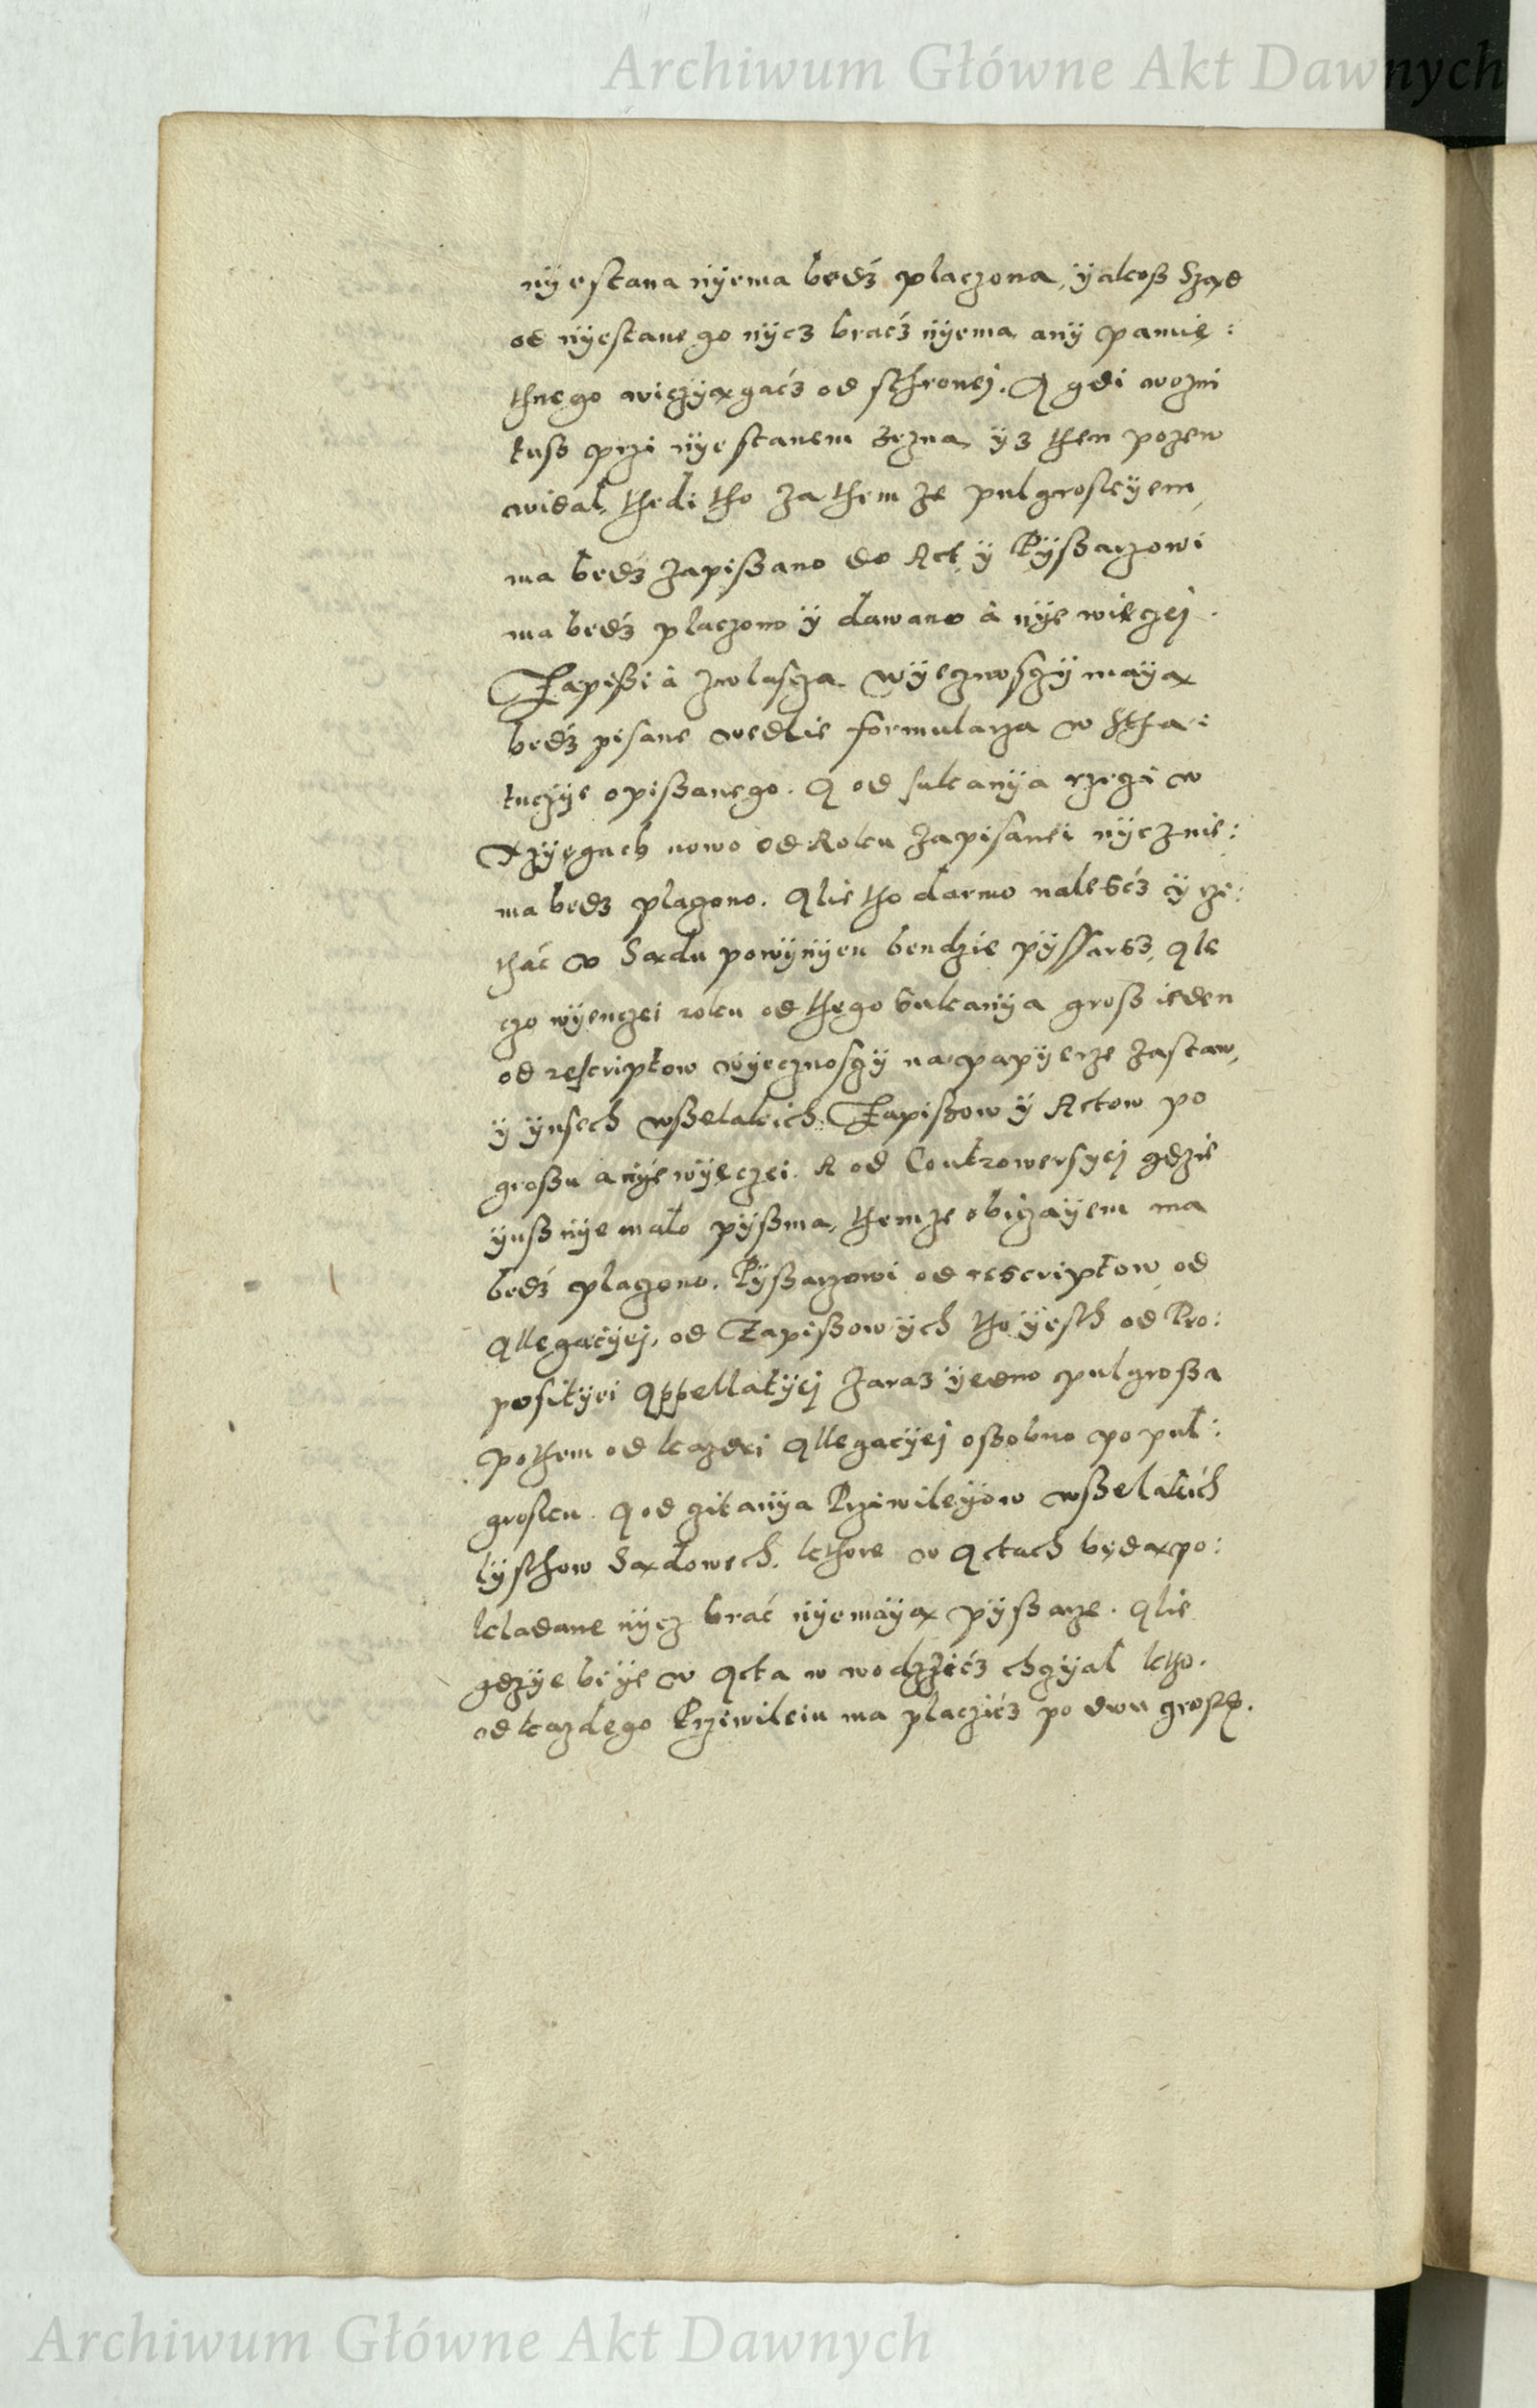 Archiwum Główne Akt Dawnych
nÿestana nÿema bedź placzona, ÿakoß Sząd
od nÿestanego nÿcz bracź nÿema, anÿ pamię:
thnego wiczÿągacź od sthronej. A gdi wozni
tuss przi nÿestanem zezna, ÿz then pozew
widal, thedi tho za them ze pulgroskÿem,
ma bedź zapißano do Act ÿ Pÿßarzowi
ma bedź placzono ÿ dawano à nÿe więczej.
Zapißi à zwlascza wÿecznosczÿ maÿą
bedź pisane wedlie formularza w Stha:
tuczÿe opißanego. A od sukanÿa rzeczi w
Xzÿęgach nowo od Roku zapisanei nÿcz nie:
ma bedz placzono. Alie tho darmo nalescź ÿ czi:
thać w Sądu powÿnÿen bendzie pÿssarsz, ale
czo wÿenczei roku od thego sukanÿa gross ieden
od rescriptow wÿecznosczÿ na papÿerze zastaw,
ÿ ÿnsech wßelakich Zapißow ÿ Actow po
großu a nÿe wÿęczei. A od Controwersÿej gdzie
ÿuß nÿe malo pÿßma, themze obiczaÿem ma
bedź placzono. Pÿßarzowi od rescriptow od
Allegacÿej, od Zapißowÿch tho ÿesth od Pro:
positÿei Appellatÿej zaraz ÿedno pulgroßa
pothem od kazdei Allegacÿej oßobno po pul:
grosku. A od czitanÿa Prziwileÿow wßelakich
lÿsthow Sądowech, kthore w Actach będą po:
kladane nÿcz brać nÿemaÿą pÿßarze. Alie
gdzÿe bi ÿe w Acta w wodzźicź chczÿal ktho.
od kazdego Prziwileiu ma placzicź po dwu
Archiwum Główne Akt Dawnych